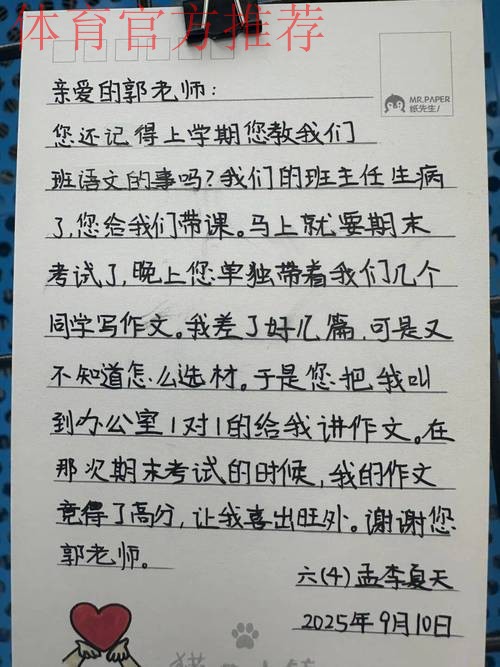 体育官方推荐
MR.PAPER
纸先生!
亲爱的郭老师：
您还记得上学期您教我们
班语文的事吗？我们的班主任生病
了，您给我们带课。马上就要期末
考试了，晚上您单独带着我们几个
同学写作文。我差了好几篇，可是又
不知道怎么选材。于是您把我叫
到办公室1对1的给我讲作文。在
那次期末考试的时候，我的作文
竟得了高分，让我喜出望外。谢谢您
郭老师。
六(4)孟李夏天
2025年9月10日